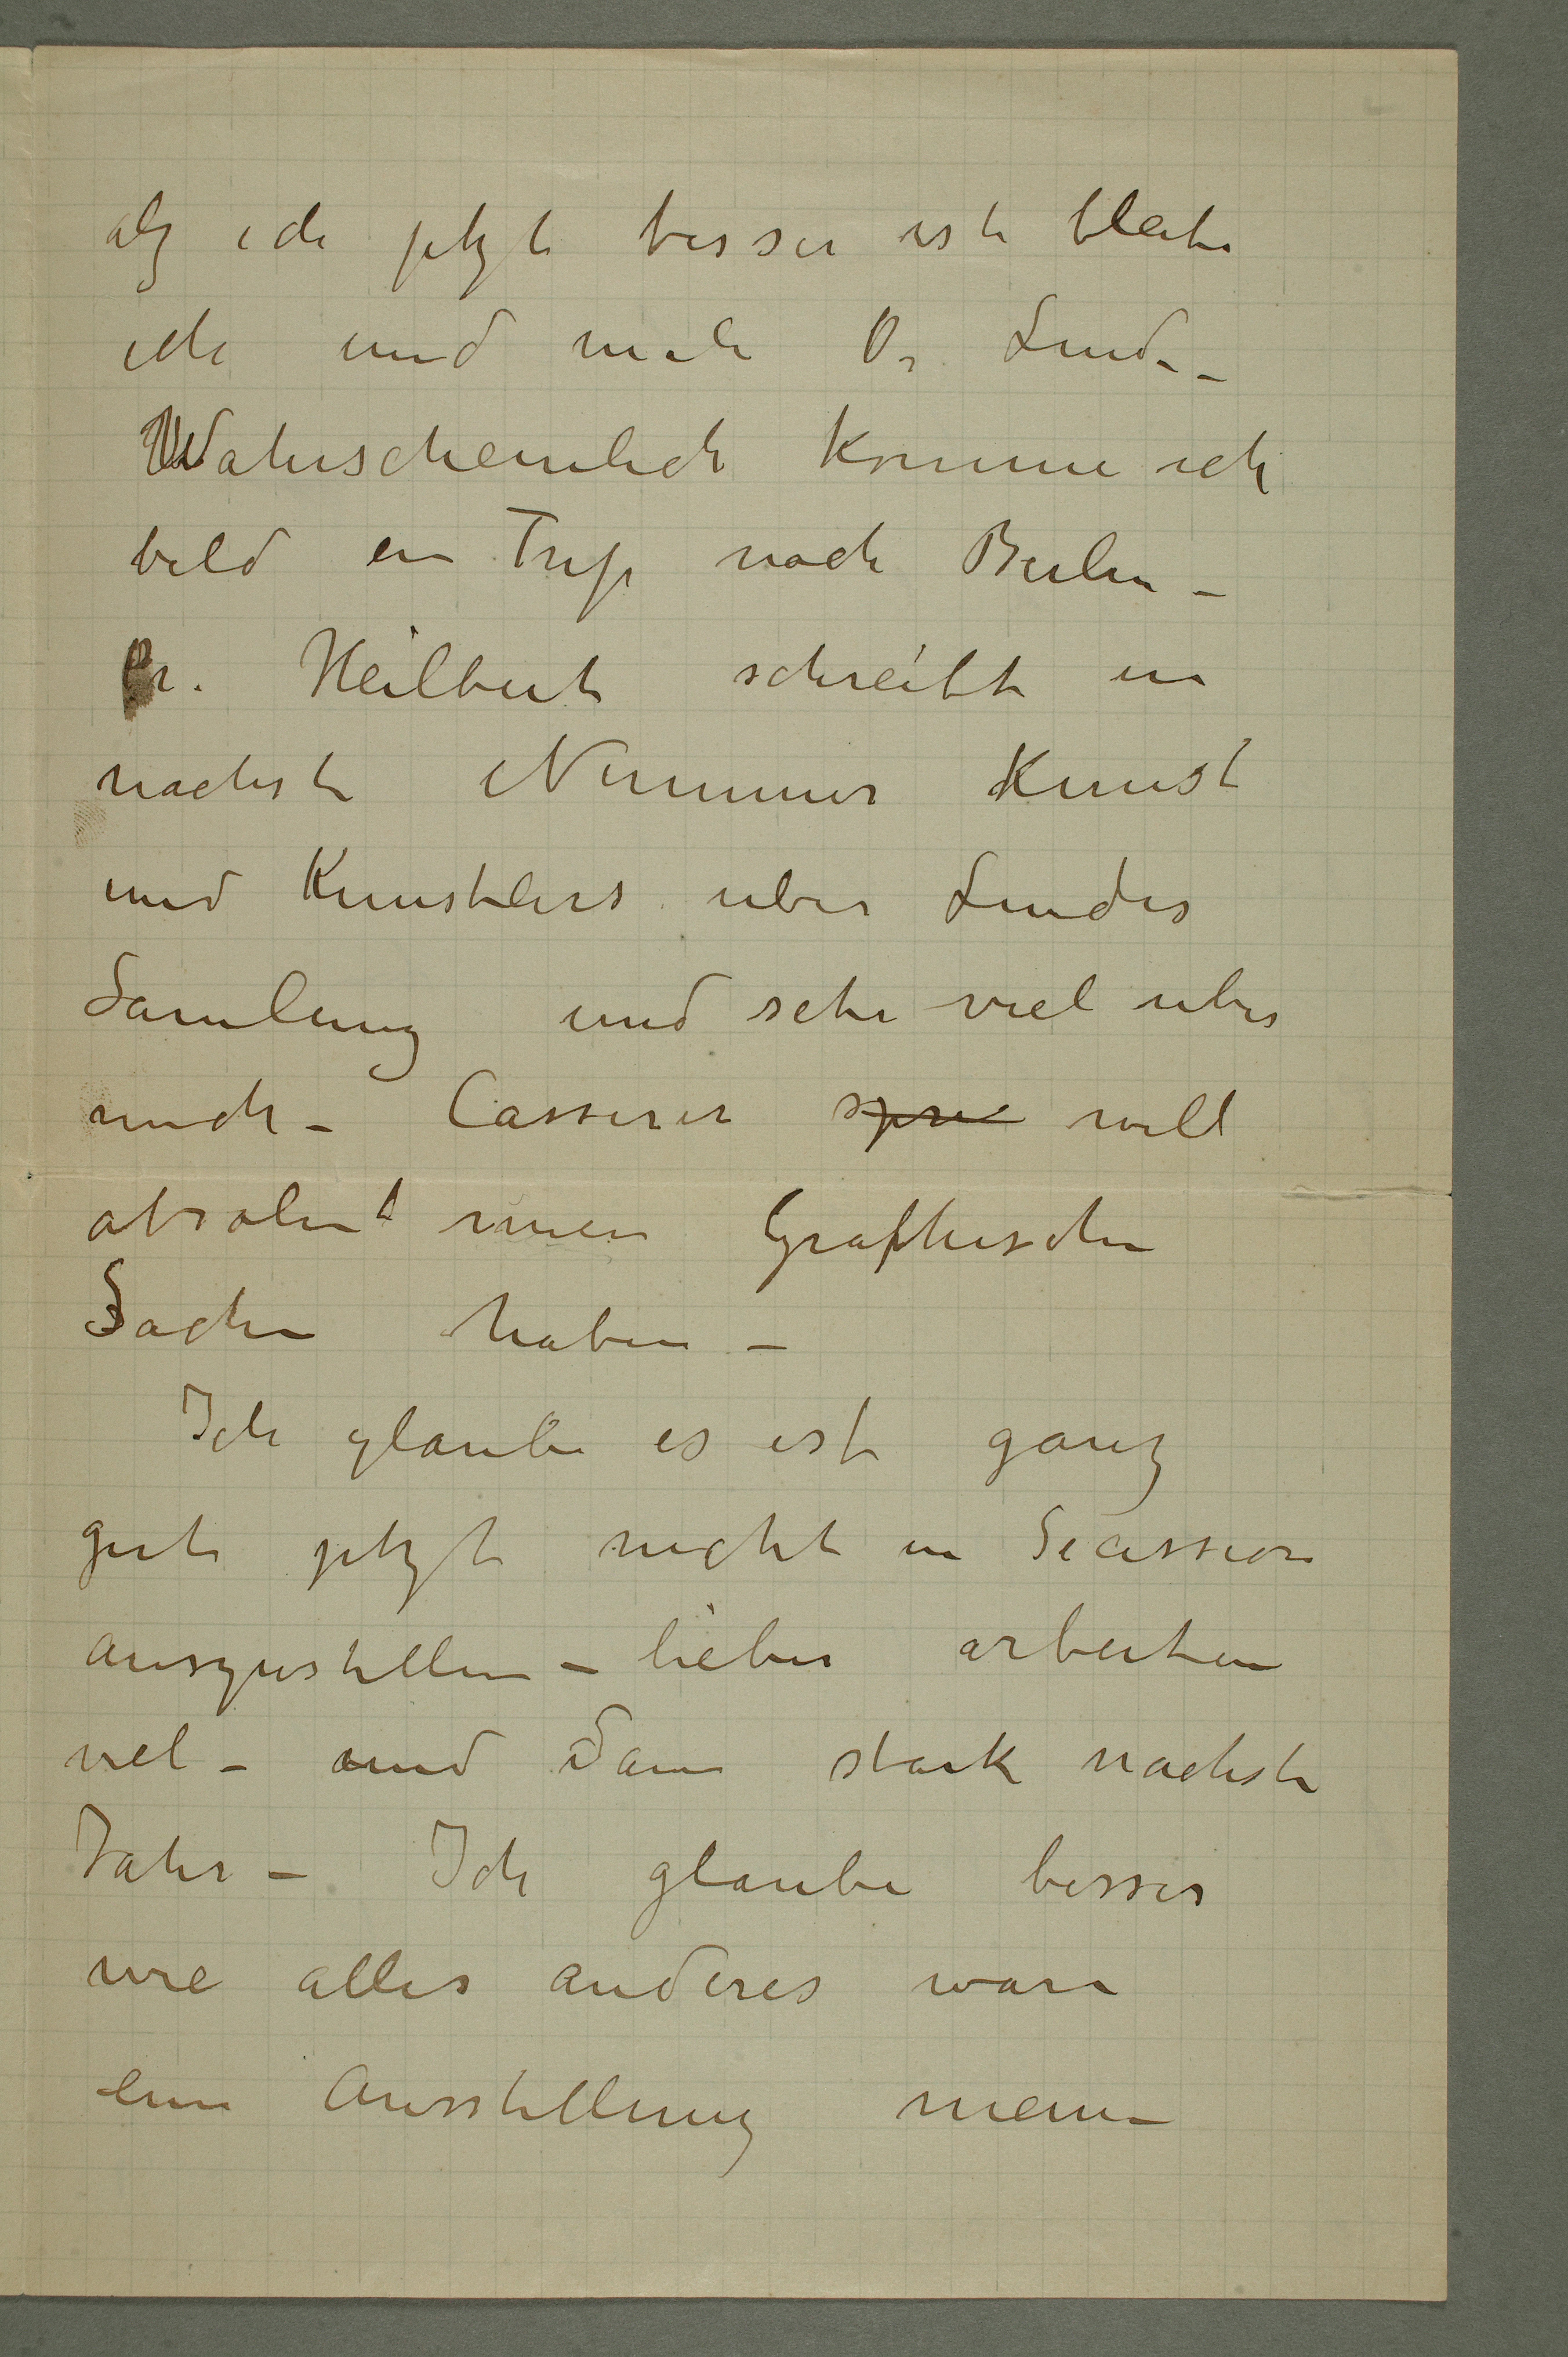 als ich jetzt besser ist bleibe
ich und male Dr Linde_
Wahrscheinlich komme ich
bald en Trip nach Berlin –
Dr. Heilbut schreibt in
nachste Nummer Kunst
und Kunstlers uber Lindes
Samlung und sehr viel uber
mich – Cassirer spre will
absolut meine Graphischen
Sachen haben –
Ich glaube es ist ganz
gut jetzt nicht in Secession
auszustellen – lieber arbeiten
viel – und dann stark nachste
Jahr – Ich glaube besser
wie alles anderes ware
eine Ausstellung meine